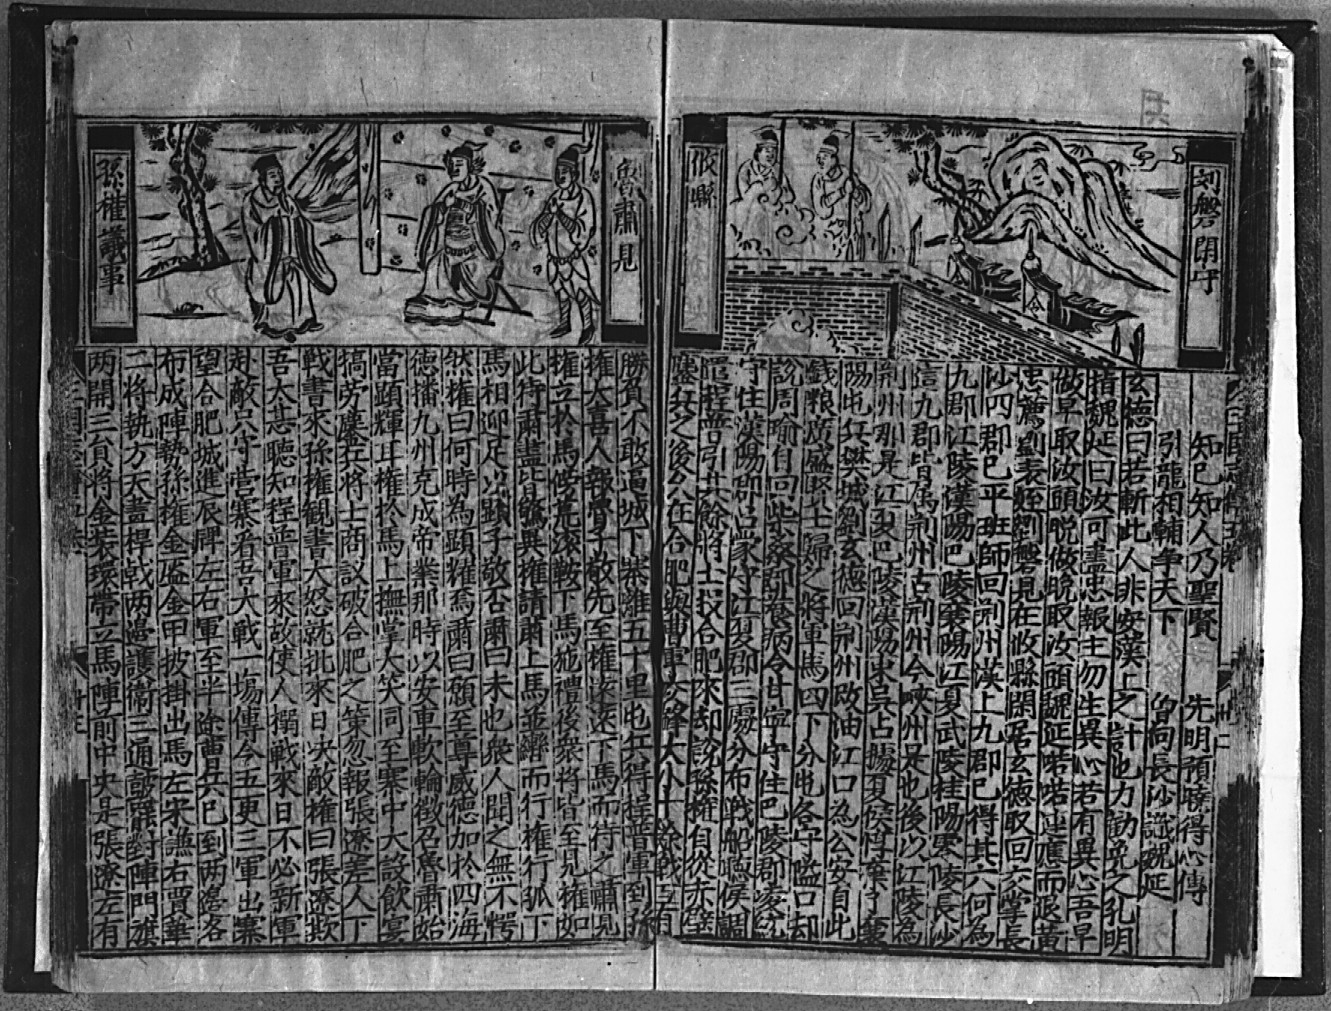 刘磐閑守
攸縣
知己知人乃聖賢　先明預曉得心傳
引龍相輔爭天下　皆向長沙識魏延
玄德曰若斬此人非安漢上之計也力勸免之孔明
指魏延曰汝可盡忠報主勿生異心若有異心吾早
做早取汝頭晚做晚取汝頭魏延喏喏連應而退黃
忠薦劉表姪劉磐見在攸縣閑居玄德取回交掌長
沙四郡已平班師回荊州漢上九郡已得其六何為
九郡江陵漢陽巴陵襄陽江夏武陵桂陽零陵長沙
這九郡皆屬荊州古荊州今峽州是也後以江陵為
荊州那是江夏巴陵漢陽東吳占據夏侯惇棄了襄
陽屯兵樊城劉玄德回荊州改油江口為公安自此
錢粮廣盛賢士歸之將軍馬四下分屯各守隘口却
說周瑜自回柴桑郡養病令甘寧守住巴陵郡凌統
守住漢陽郡呂蒙守江夏郡三處分布戰船聽侯調
遣程普引其餘將士投合肥來却說孫權自從赤壁
鏖兵之後久在合肥與曹軍交鋒大小十餘戰互有
魯肅見
孫權議事
勝負不敢逼城下寨離五十里屯兵得程普軍到孫
權大喜人報魯子敬先至權滚滚下馬而待之肅見
權立於馬傍荒滚鞍下馬施禮後衆將皆至見權如
此待肅盡皆驚異權請肅上馬並轡而行權行弧下
馬相迎足以顕子敬否肅曰未也衆人聞之無不愕
然權曰何時為顕耀焉肅曰願至尊威德加於四海
德播九州克成帝業那時以安車軟輪徵召魯肅始
當顕輝耳權於馬上撫掌大笑同至寨中大設飲宴
犒劳鏖兵將士商議破合肥之策忽報張遼差人下
戰書來孫權觀書大怒就批來日决敵權曰張遼欺
吾太甚聽知程普軍來故使人搦戰來日不必新軍
赴敵只守营寨看吾大戰一塲傳令五更三軍出寨
望合肥城進辰牌左右軍至半途曹兵已到两邊各
布成陣勢孫權金盔金甲披掛出馬左宋謙右賈華
二將執方天畫桿戟两邊護衛三通鼓罷對陣門旗
两開三員將金装環帶立馬陣前中央是張遼左有